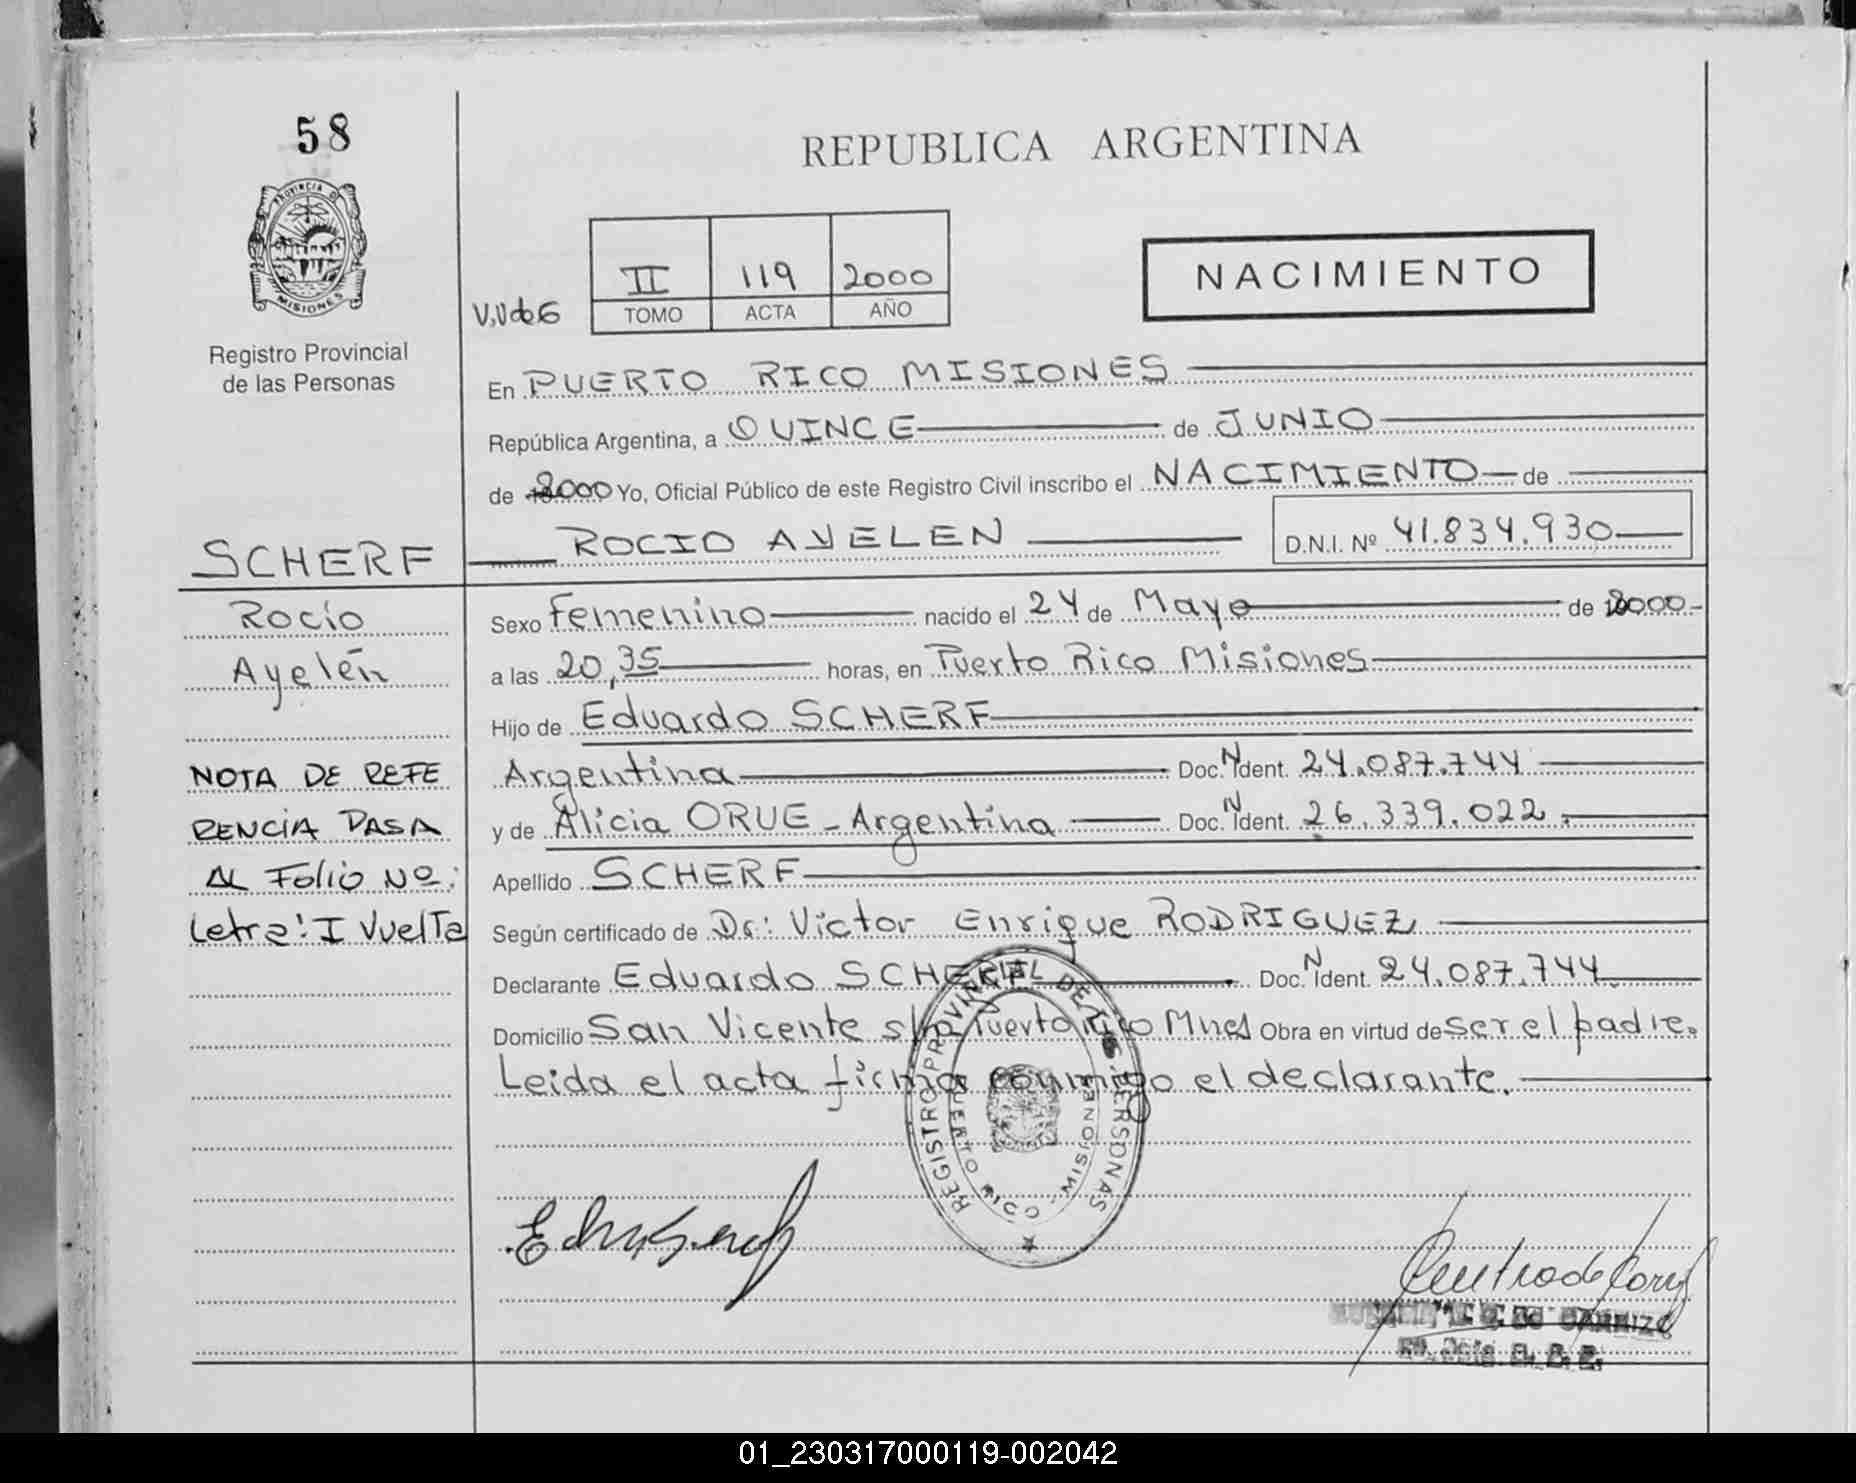 58
PROVINCIA DE
MISIONES
Registro Provincial
de las Personas
REPUBLICA ARGENTINA
II 119 2000
TOMO ACTA AÑO
NACIMIENTO
En PUERTO RICO MISIONES
República Argentina, a QUINCE de JUNIO
de 2000 Yo, Oficial Público de este Registro Civil inscribo el NACIMIENTO de
ROCIO AYELEN D.N.I. Nº 41.834.930
SCHERF
Rocío
Ayelén
NOTA DE REFE
RENCIA PASA
AL Folio Nº:
Letra: I Vuelta
Sexo Femenino nacido el 24 de Mayo de 2000-
a las 20,35 horas, en Puerto Rico Misiones
Hijo de Eduardo SCHERF
Argentina Doc. N Ident. 24.087.744
y de Alicia ORUE - Argentina Doc. N Ident. 26.339.022.
Apellido SCHERF
Según certificado de Dr: Victor Enrique RODRIGUEZ
Declarante Eduardo SCHERF Doc. N Ident. 24.087.744
Domicilio San Vicente s/n Puerto Rico Mnes Obra en virtud de ser el padre.
Leida el acta firma conmigo el declarante.
REGISTRO PROVINCIAL DE LAS PERSONAS
PUERTO RICO - MISIONES
DE CARRIZO
01_230317000119-002042